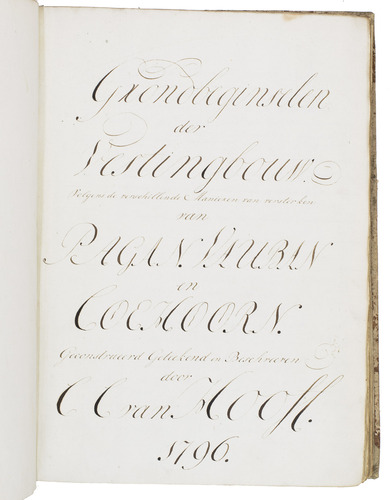 Grondbeginselen
der
Vestingbouw.
Volgens de verschillende Manieren van versterken
van
PAGAN. VAUBAN
en
COEHOORN.
Geconstrueerd Getekend en Beschreeven
door
C C van Hooff.
1796.